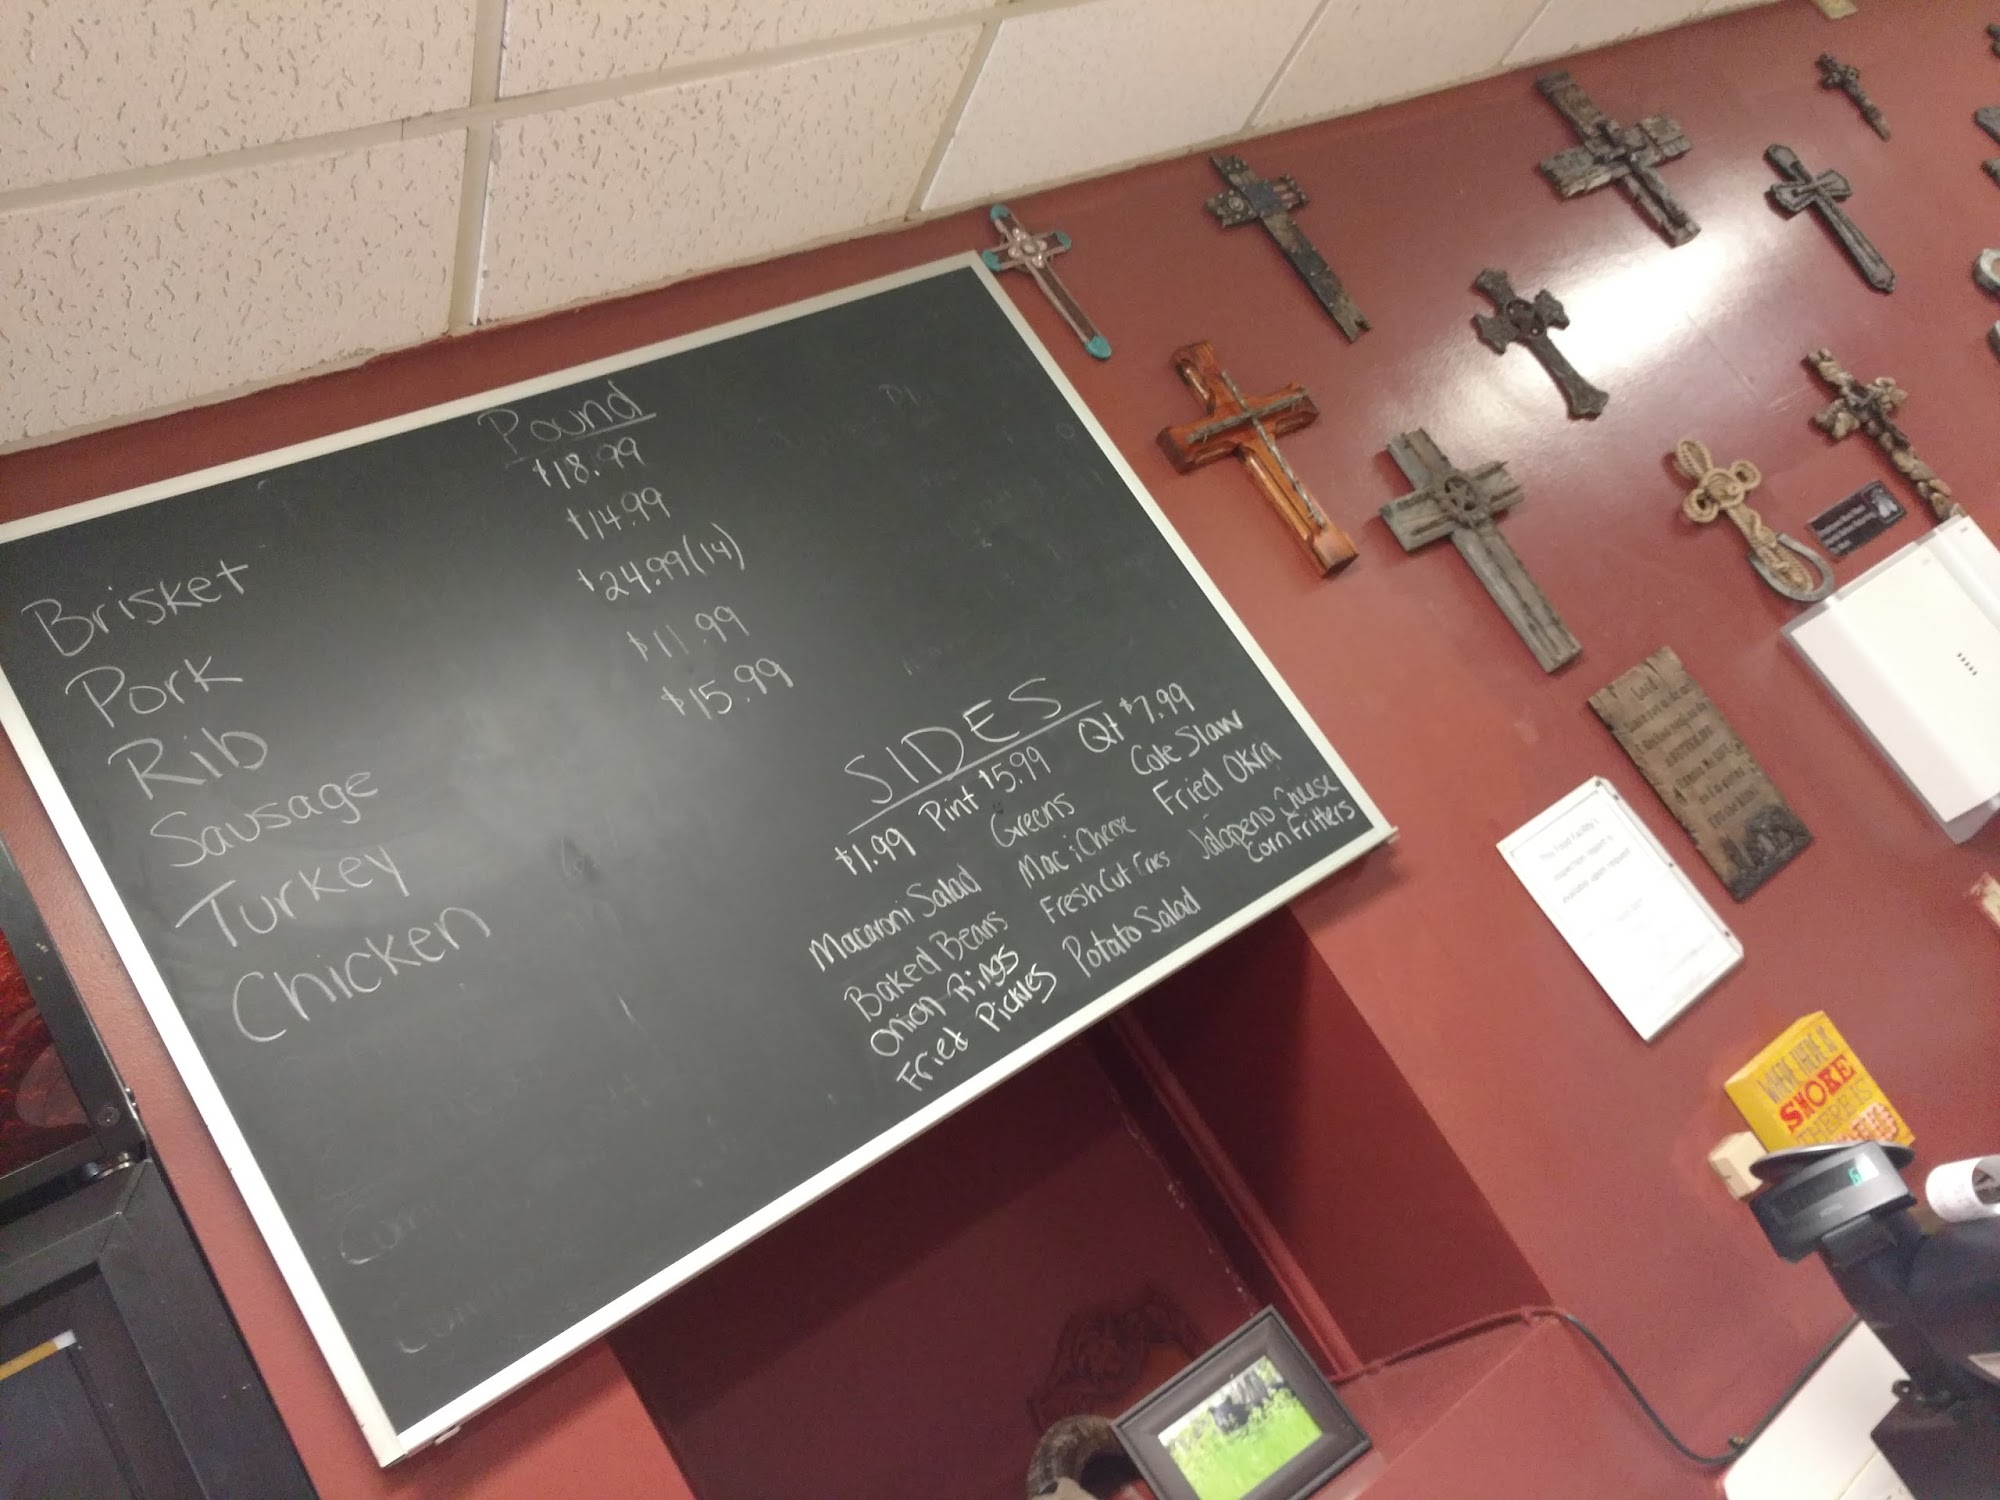 Pound
Brisket $18.99
Pork $14.99
Rib $24.99(14)
Sausage $11.99
Turkey $15.99
Chicken
SIDES
$1.99 Pint $5.99 Qt $7.99
Macaroni Salad Greens Cole Slaw
Baked Beans Mac i Cheese Fried Okra
Onion Rings Fresh Cut Fries Jalapeno Cheese
Corn Fritters
Fried Pickles Potato Salad
Lord
This Food Facility's
inspection report is
Available upon request
SMOKE
THERE IS